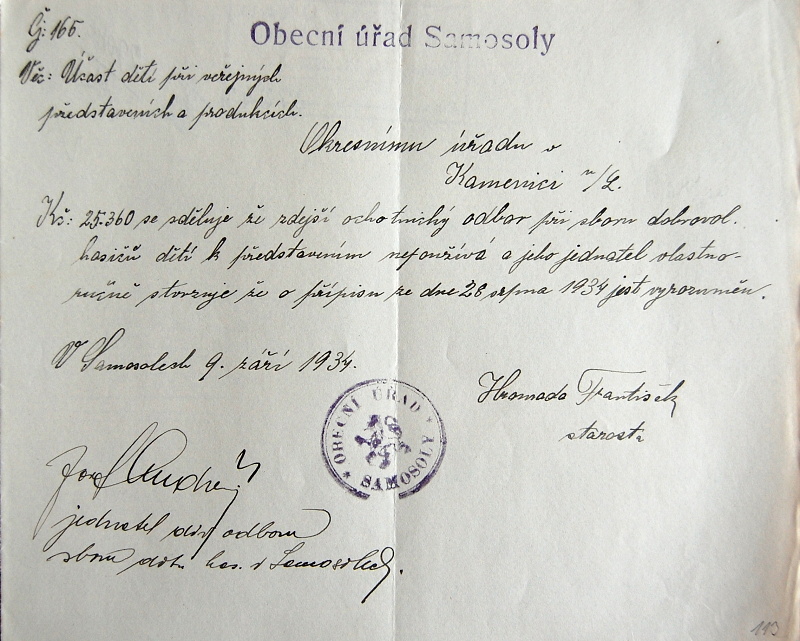 Obecní úřad Samosoly
Čj: 166.
Věc: Účast dětí při veřejných
představeních a produkcích.
Okresnímu úřadu v
Kamenici n/L.
Kč: 25.360 se sděluje že zdejší ochotnický odbor při sboru dobrovol.
hasičů dětí k představením nepoužívá a jeho jednatel vlastno-
ručně stvrzuje že o přípisu ze dne 28 srpna 1934 jest vyrozuměn.
V Samosolech 9. září 1934.
Hromada František
starosta
OBECNÍ ÚŘAD
SAMOSOLY
Josef
jednatel div. odboru
sboru dobr. has. v Samosolech.
113